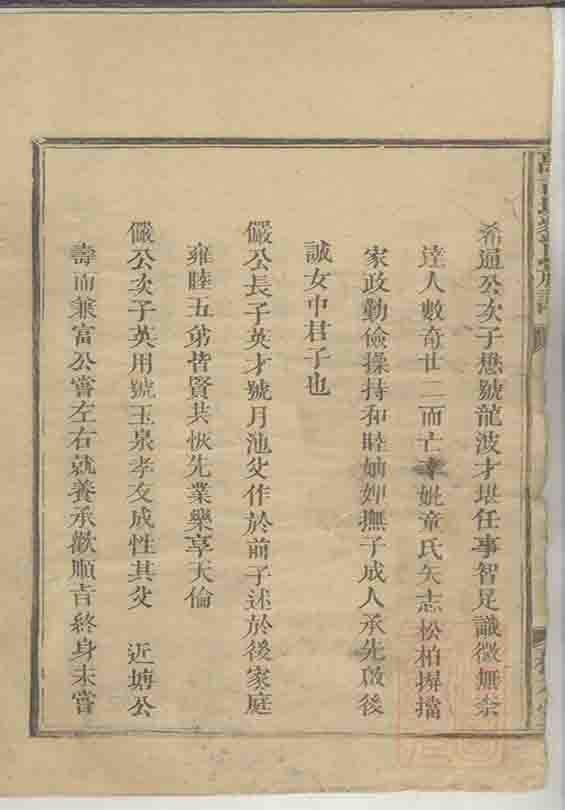 希過公次子懋號龍波才堪任事智足識微無奈
達人數奇廿二而亡 妣童氏矢志松柏摒擋
家政勤儉操持和睦妯娌撫子成人承先啟後
誠女中君子也
儼公長子英才號月池父作於前子述於後家庭
雍睦五弟皆賢共恢先業樂享天倫
儼公次子英用號玉泉孝友成性其父 近塘公
壽而兼富公嘗左右就養承歡順言終身未嘗